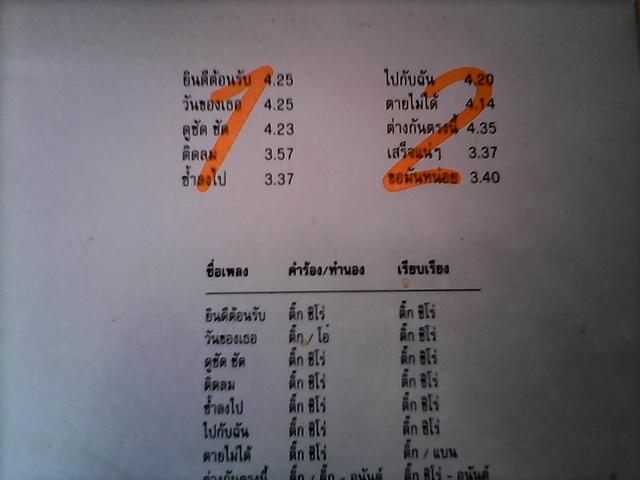 1
ยินดีต้อนรับ 4.25
วันของเธอ 4.25
ดูชัด ชัด 4.23
ติดลม 3.57
ช้ำลงไป 3.37
2
ไปกับฉัน 4.20
ตายไม่ได้ 4.14
ต่างกันตรงนี้ 4.35
เสร็จแน่ๆ 3.37
ขอมันหน่อย 3.40
ชื่อเพลง คำร้อง/ทำนอง เรียบเรียง
ยินดีต้อนรับ ติ๊ก ชิโร่ ติ๊ก ชิโร่
วันของเธอ ติ๊ก / โอ๋ ติ๊ก ชิโร่
ดูชัด ชัด ติ๊ก ชิโร่ ติ๊ก ชิโร่
ติดลม ติ๊ก ชิโร่ ติ๊ก ชิโร่
ช้ำลงไป ติ๊ก ชิโร่ ติ๊ก ชิโร่
ไปกับฉัน ติ๊ก ชิโร่ ติ๊ก ชิโร่
ตายไม่ได้ ติ๊ก ชิโร่ ติ๊ก / แบน
ต่างกันตรงนี้ ติ๊ก / ติ๊ก - อนันต์ ติ๊ก ชิโร่ - อนันต์